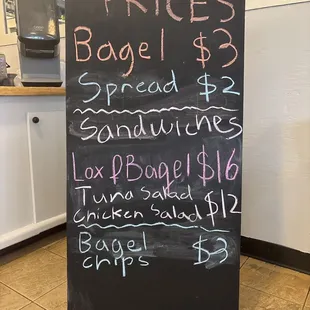 PRICES
Bagel $3
Spread $2
Sandwiches
Lox & Bagel $16
Tuna Salad
Chicken Salad $12
Bagel $3
chips